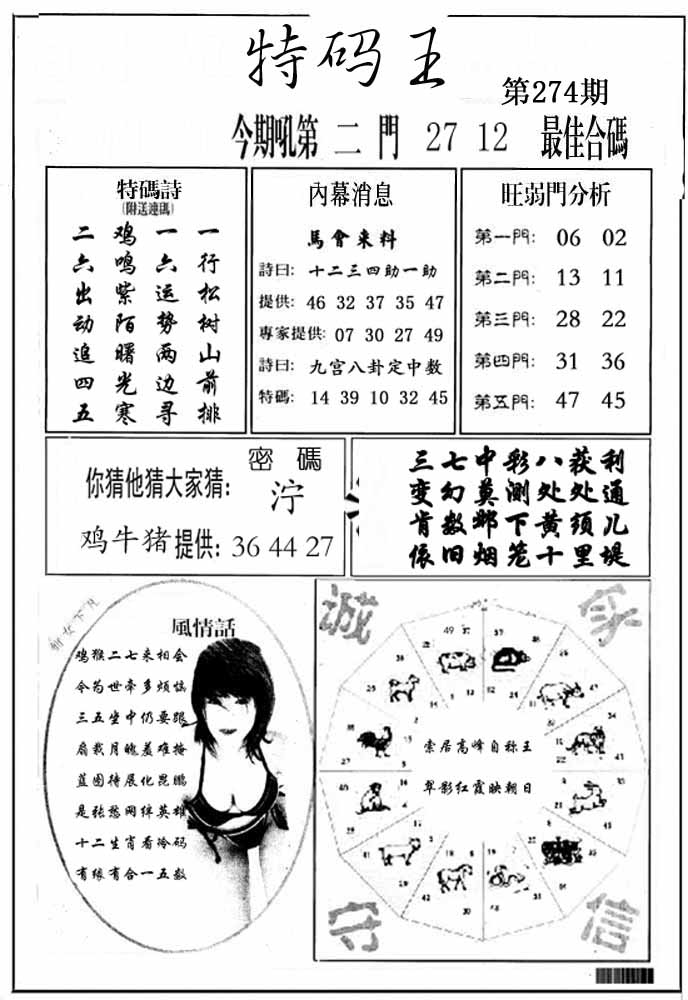 特码王
第274期
今期吼第 二 門 27 12 最佳合碼
特碼詩
(附送連碼)
一行松树山前排
一六运势两边寻
鸡鸣紫陌曙光寒
二六出动追四五
內幕消息
馬會来料
詩曰: 十二三四助一助
提供: 46 32 37 35 47
專家提供: 07 30 27 49
詩曰: 九宫八卦定中数
特碼: 14 39 10 32 45
旺弱門分析
第一門: 06 02
第二門: 13 11
第三門: 28 22
第四門: 31 36
第五門: 47 45
密碼
你猜他猜大家猜: 泞
鸡牛猪提供: 36 44 27
三七中彩八获利
变幻莫测处处通
肯数邺下黄须儿
依旧烟笼十里堤
風情話
鸡猴二七来相会
令药世牵多烦恼
三五坐中仍要跟
扇裁月魄羞难掩
蓝图待展化昆鹏
是张愁网绊英雄
十二生肖看冷码
有缘有合一五数
诚
守
信
索居高峰自称王
翠影红霞映朝日